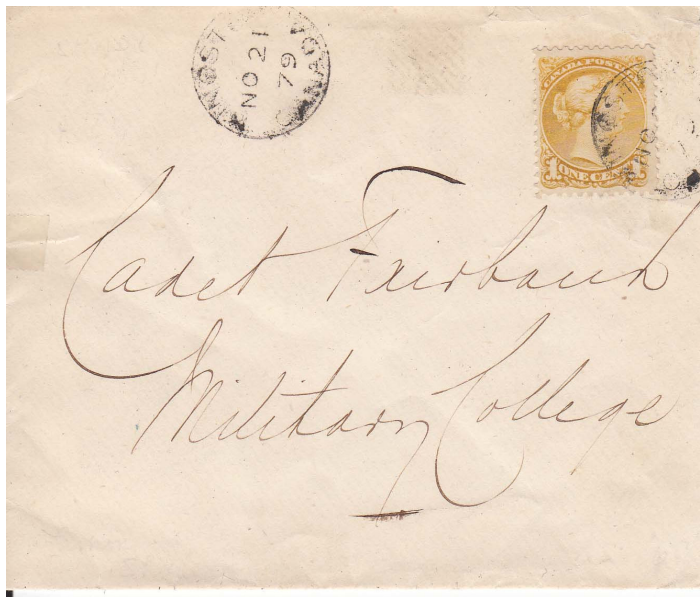 NO 21
79
CANADA
CANADA POSTAGE
1 ONE CENT 1
Cadet Fairbank
Military College